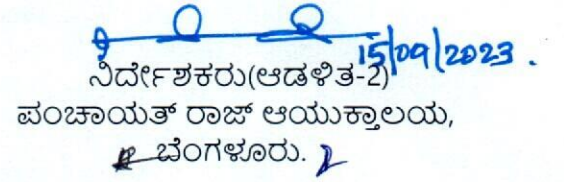 15/09/2023.
ನಿರ್ದೇಶಕರು(ಆಡಳಿತ-2)
ಪಂಚಾಯತ್ ರಾಜ್ ಆಯುಕ್ತಾಲಯ,
ಬೆಂಗಳೂರು.